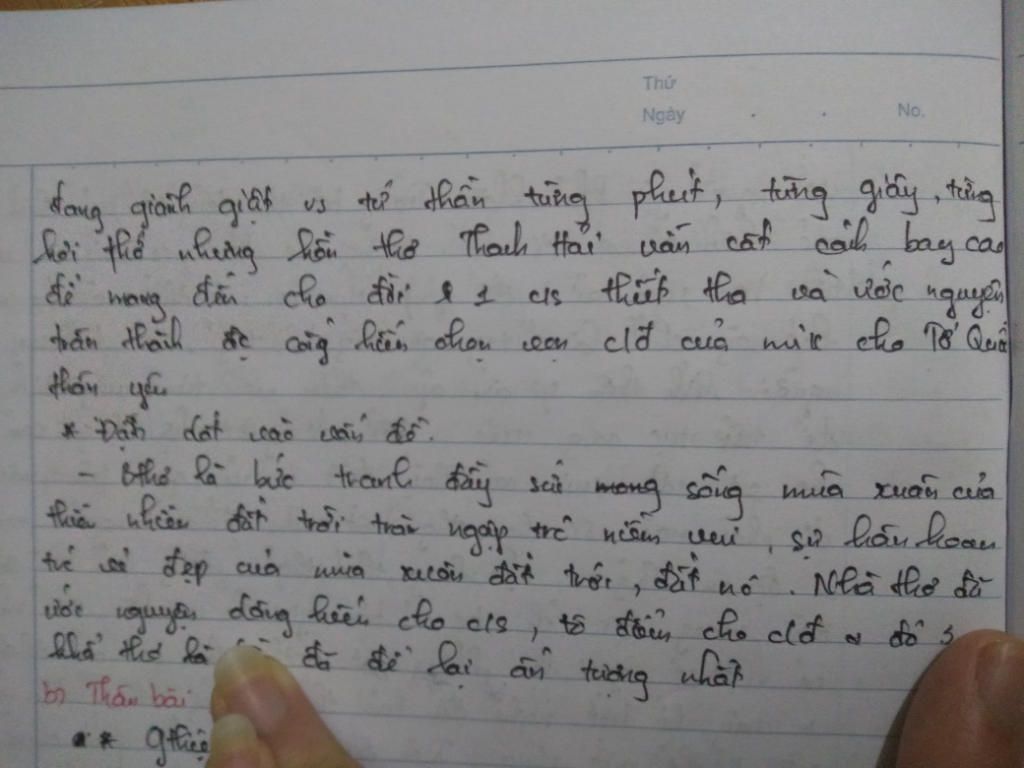 Thứ
Ngày . . No.
đang giành giật vs tử thần từng phút, từng giây, từng
hơi thở nhưng hồn thơ Thanh Hải vẫn cất cánh bay cao
để mang đến cho đời 1 c/s thiết tha và ước nguyện
trân thành đc cống hiến chọn vẹn c/đ của mk cho Tổ Quốc
thân yêu
* Dẫn dắt vào vấn đề.
- Bthơ là bức tranh đầy sức sống mùa xuân của
thiên nhiên đất trời tràn ngập trc niềm vui, sự hân hoan
trc vẻ đẹp của mùa xuân đất trời, đất nc. Nhà thơ đã
ước nguyện dâng hiến cho c/s, tô điểm cho c/đ
khổ thơ là đã để lại ấn tượng nhất
b) Thân bài
* Gthiệ